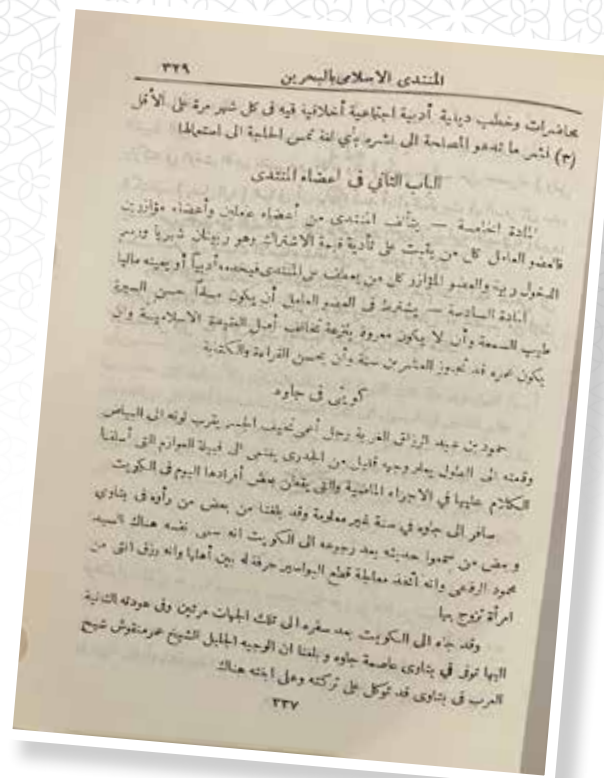 المنتدى الاسلامى بالبحرين ٣٢٩
محاضرات وخطب دينية أدبية اجتماعية أخلاقية فيه فى كل شهر مرة على الأقل
(٣) نشر ما تدعو المصلحة الى نشره بأي لغة تمس الحاجة الى استعمالها
الباب الثاني فى اعضاء المنتدى
المادة الخامسة — يتألف المنتدى من أعضاء عملين وأعضاء مؤازرين
فالعضو العامل كل من يثبت على تأدية قيمة الاشتراك وهو ربيتان شهريا ورسم
الدخول ربية والعضو المؤازر كل من يعطف على المنتدى فيخدمه أدبياً أو يعينه ماليا
المادة السادسة — يشترط فى العضو العامل أن يكون مسلماً حسن السيرة
طيب السمعة وأن لا يكون معروف بنزعة تخالف أصل العقيدة الاسلامية وان
يكون عمره قد تجاوز العشرين سنة وأن يحسن القراءة والكتابة
كويتى فى جاوه
حمود بن عبد الرزاق رجل أعمى نحيف الجسم يقرب لونه الى البياض
وقمته الى الطول بعلو وجهه قليل من الجدرى ينتمى الى قبيلة العوازم التى أسلفنا
الكلام عليها في الاجزاء الماضية والتى يقطن بعض أفرادها اليوم فى الكويت
سافر الى جاوه في سنة غير معلومة وقد بلغنا من بعض من رأوه فى بتاوى
و بعض من سمعوا حديثه بعد رجوعه الى الكويت انه سمى نفسه هناك السيد
محمود الرفعى وانه اتخذ معالجة قطع البواسير حرفة له بين أهلها وانه رزق انثى من
امرأة تزوج بها
وقد جاء الى الكويت بعد سفره الى تلك الجهات مرتين وفى عودته الثانية
اليها توفى في بتاوى عاصمة جاوه و بلغنا ان الوجيه الجليل الشيخ عمر منقوش شيخ
العرب فى بتاوى قد توكل على تركته وعلى ابنته هناك
٢٣٧